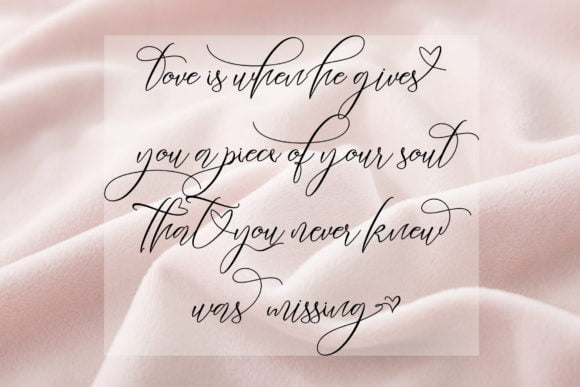 Love is when he gives
you a piece of your soul
That you never knew
was missing